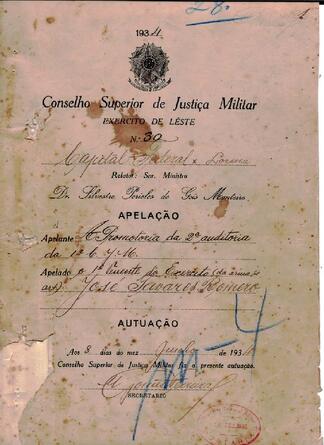 28
1
1934
Conselho Superior de Justiça Militar
EXERCITO DE LÉSTE
N.º 30
Capital Federal
Relator: Snr. Ministro
Dr. Silvestre Pericles de Góis Monteiro
APELAÇÃO
Apelante A Promotoria da 2ª auditoria
da 1ª C. J. M.
Apelado o 1º Tenente do Exercito
José Tavares Romero
AUTUAÇÃO
Aos 8 dias do mez Junho de 1934
Conselho Superior de Justiça Militar fiz a presente autuação.
SECRETARIO